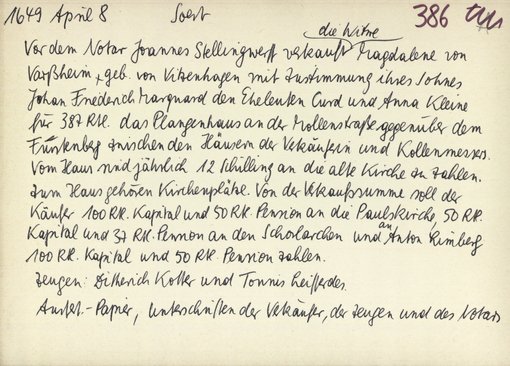 1649 April 8 Soest 386
die Witwe
Vor dem Notar Joannes Stellingwerff verkauft Magdalene von
Varßheim, geb. von Vitzenhagen mit Zustimmung ihres Sohnes
Johan Friederich Marquard den Eheleuten Curd und Anna Kleine
für 387 Rtl. das Plangenhaus an der Mollenstraße gegenüber dem
Fürstenberg zwischen den Häusern der Verkäuferin und Kollenmessers.
Vom Haus sind jährlich 12 Schilling an die alte Kirche zu zahlen.
Zum Haus gehören Kirchenplätze. Von der Verkaufssumme soll der
Käufer 100 Rtl. Kapital und 50 Rtl. Pension an die Paulskirche, 50 Rtl.
Kapital und 37 Rtl. Pension an den Scholarchen und an Anton Rimberg
100 Rtl. Kapital und 50 Rtl. Pension zahlen.
Zeugen: Ditherich Kotter und Tonnis
Ausf.-Papier, Unterschriften der Verkäufer, der Zeugen und des Notars